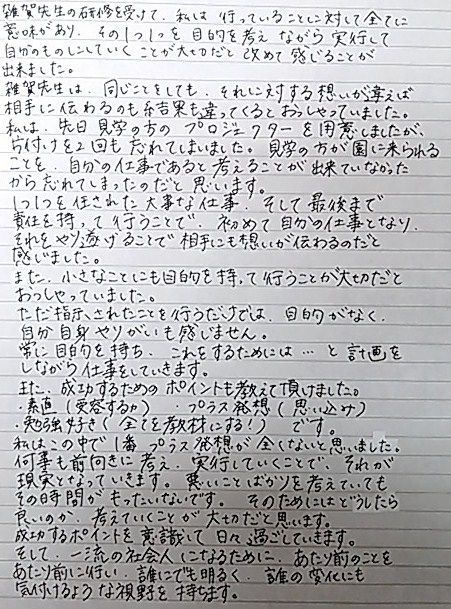 雑賀先生の研修を受けて、私は行っていることに対して全てに
意味があり、その1つ1つを目的を考えながら実行して
自分のものにしていくことが大切だと改めて感じることが
出来ました。
雑賀先生は、同じことをしても、それに対する想いが違えば
相手に伝わるのも結果も違ってくるとおっしゃっていました。
私は、先日見学の方のプロジェクターを用意しましたが、
片付けを2回も忘れてしまいました。見学の方が園に来られる
ことを、自分の仕事であると考えることが出来ていなかった
から忘れてしまったのだと思います。
1つ1つを任された大事な仕事、そして最後まで
責任を持って行うことで、初めて自分の仕事となり、
それをやり遂げることで相手にも想いが伝わるのだと
感じました。
また、小さなことにも目的を持って行うことが大切だと
おっしゃっていました。
ただ指示されたことを行うだけでは、目的がなく、
自分自身やりがいも感じません。
常に目的を持ち、これをするためには…と計画を
しながら仕事をしていきます。
また、成功するためのポイントも教えて頂けました。
・素直(受容する力) ・プラス発想(思い込み)
・勉強好き(全てを教材にする!) です。
私はこの中で1番プラス発想が全くないと思いました。
何事も前向きに考え、実行していくことで、それが
現実となっていきます。悪いことばかりを考えていても
その時間がもったいないです。そのためにはどうしたら
良いのか、考えていくことが大切だと思います。
成功するポイントを意識して日々過ごしていきます。
そして、一流の社会人になるために、あたり前のことを
あたり前に行い、誰にでも明るく、誰の変化にも
気付けるような視野を持ちます。